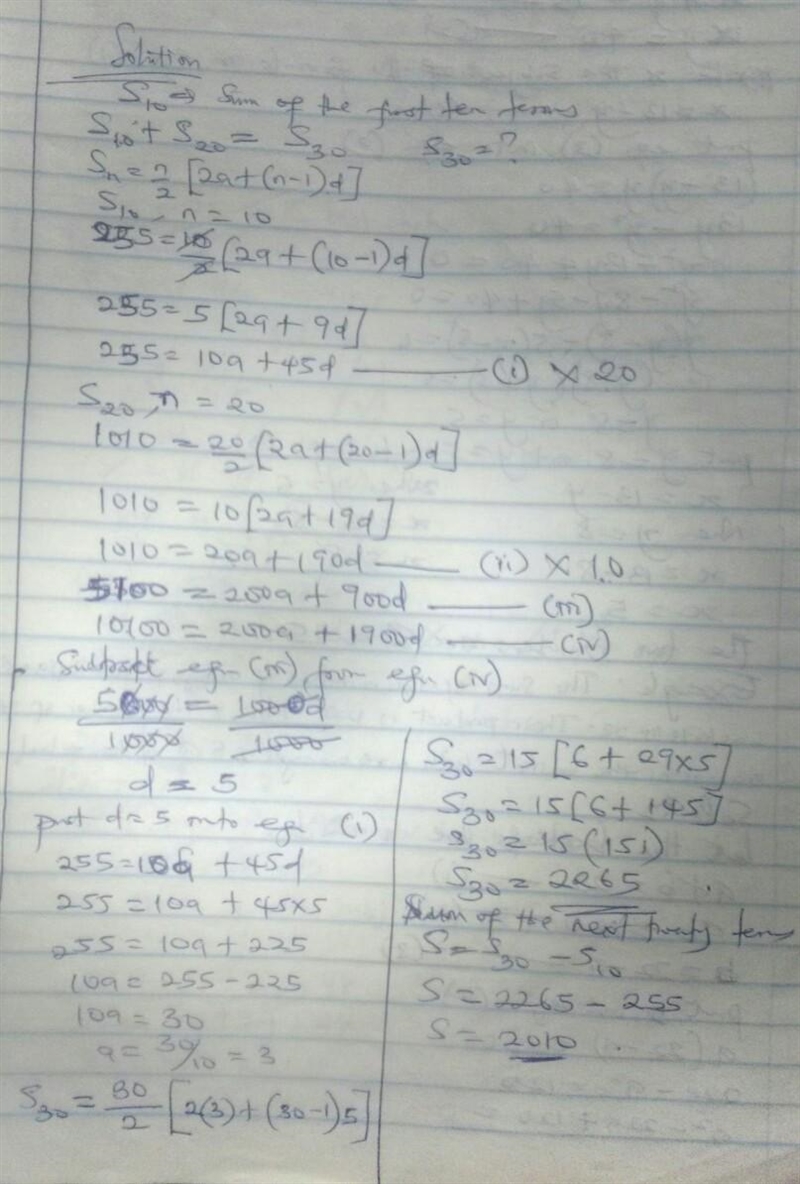 Solution
S10 ⇒ Sum of the first ten terms
S10 + S20 = S30    S30 = ?
Sn = n/2 [2a+(n-1)d]
S10, n = 10
255 = 10/2 [2a+(10-1)d]
255 = 5[2a+9d]
255 = 10a+45d ——— (i) × 20
S20, n = 20
1010 = 20/2 [2a+(20-1)d]
1010 = 10[2a+19d]
1010 = 20a+190d ——— (ii) × 10
5100 = 200a + 900d ——— (iii)
10100 = 200a + 1900d ——— (iv)
Subtract eqn (iii) from eqn (iv)
5000/1000 = 1000d/1000
d = 5
put d=5 into eqn (i)
255 = 10a + 45d
255 = 10a + 45×5
255 = 10a + 225
10a = 255-225
10a = 30
a = 30/10 = 3
S30 = 30/2 [2(3)+(30-1)5]
S30 = 15[6+29×5]
S30 = 15[6+145]
S30 = 15(151)
S30 = 2265.
Sum of the next twenty terms
S = S30 - S10
S = 2265 - 255
S = 2010.